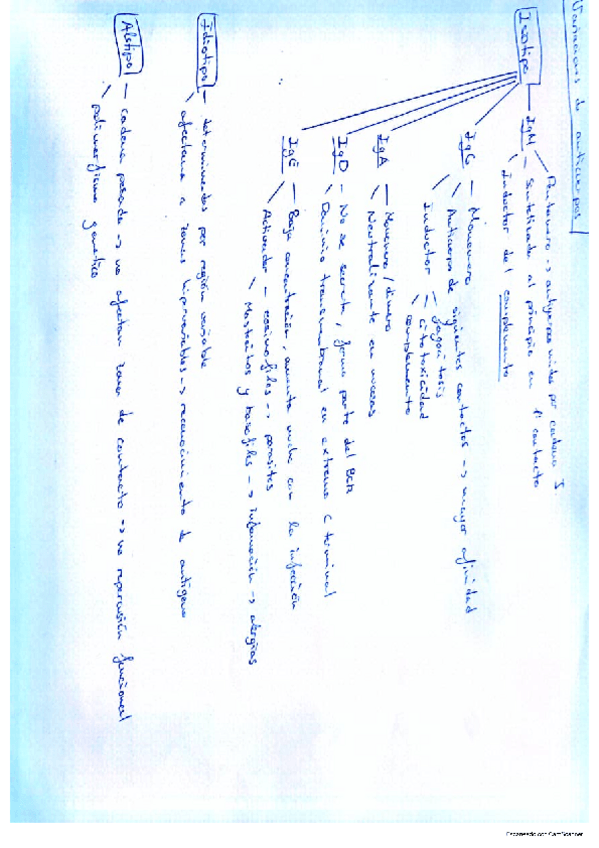 Variaciones de anticuerpos
Isotipo
IgM
Pentámero -> anticuerpos unidos por cadena J
Sintetizada al principio en 1er contacto
Inductor del complemento
IgG - Monómero
Anticuerpo de siguientes contactos -> mayor afinidad
Inductor - fagocitosis
citotoxicidad
complemento
IgA - Monómero / dímero
Neutralizante en mucosas
IgD - No se secreta, forma parte del BCR
Dominio transmembranal en extremo C terminal
IgE - Baja concentración, aumenta mucho con la infección
Activador - eosinofilos -> parasitos
Mastocitos y basofilos -> inflamación -> alergias
Idiotipo - determinados por región variable
afectan a zonas hipervariables -> reconocimiento de antígeno
Alotipo - cadena pesada -> no afectan zonas de contacto -> no repercusión funcional
polimorfismo genético
Escaneado con CamScanner